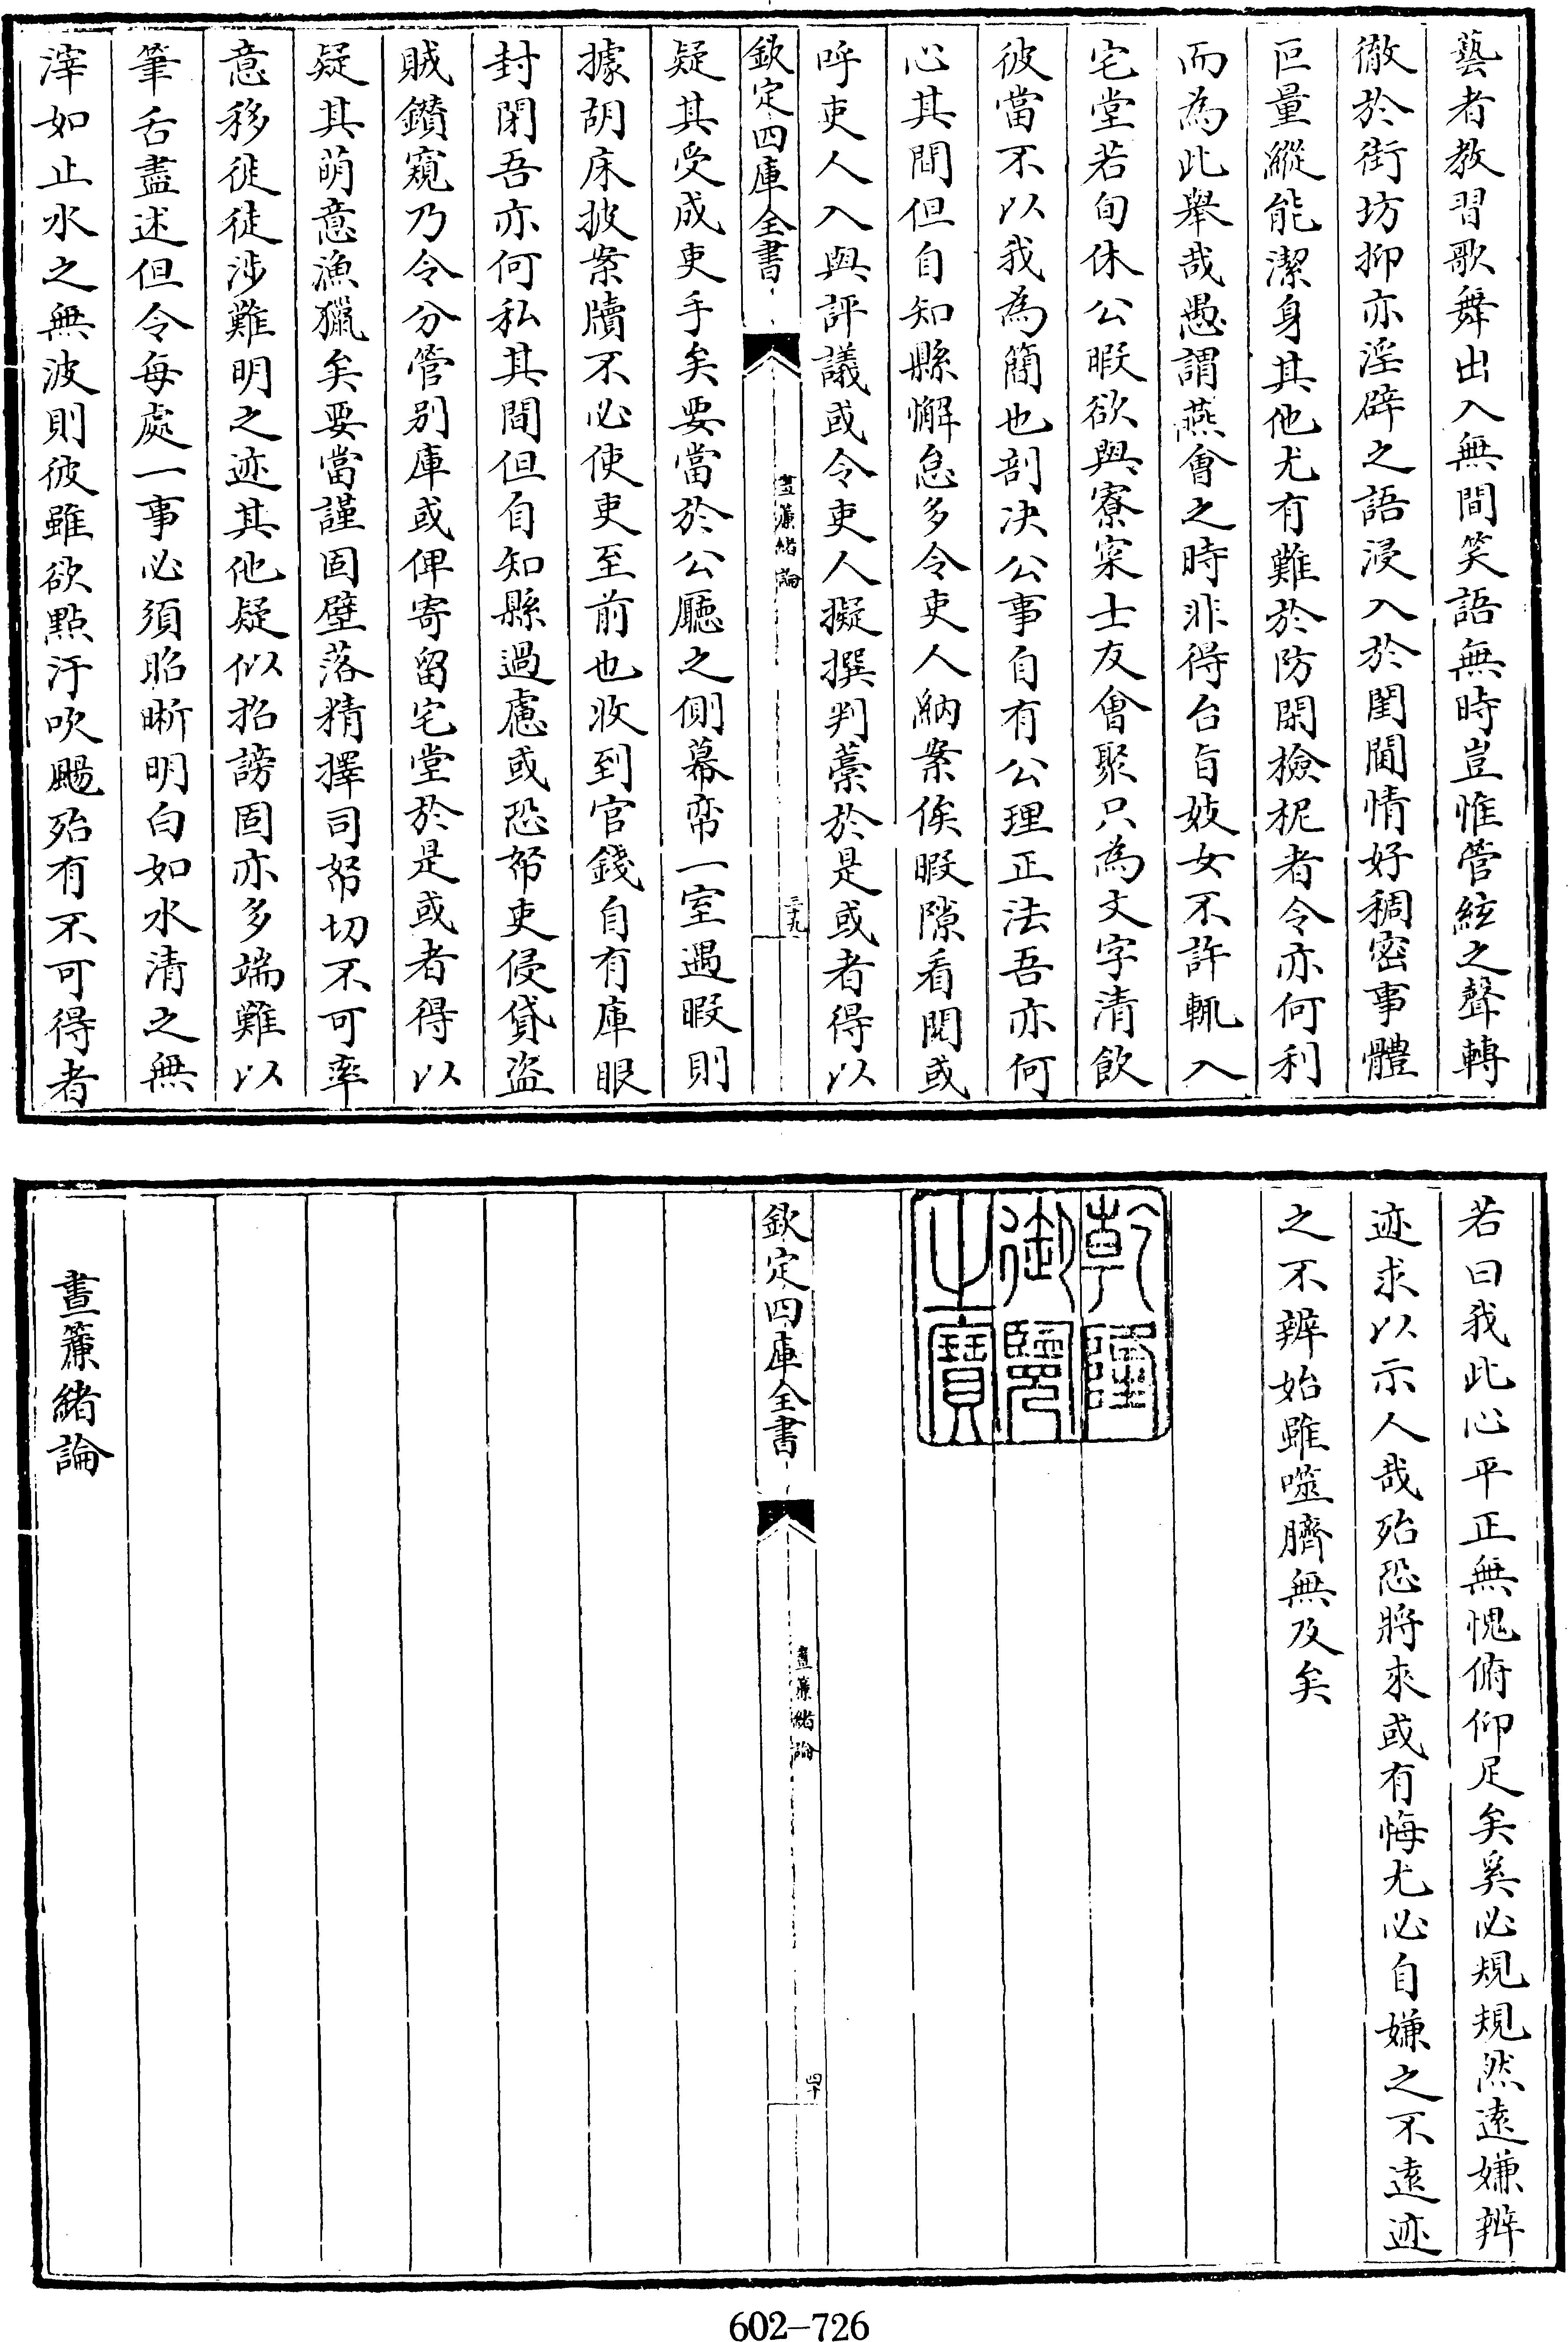 藝者教習歌舞出入無間笑語無時豈惟管絃之聲轉
徹於街坊抑亦淫辟之語浸入於閨閫情好稠密事體
叵量縱能潔身其他尤有難於防閑檢柅者令亦何利
而為此舉哉愚謂燕會之時非得台旨妓女不許輒入
宅堂若旬休公暇欲與寮寀士友會聚只為文字清飲
彼當不以我為簡也剖决公事自有公理正法吾亦何
心其間但自知縣懈怠多令吏人納案俟暇隙看閱或
呼吏人入與評議或令吏人擬撰判藁於是或者得以
欽定四庫全書
晝簾緒論
三十九
疑其受成吏手矣要當於公廳之側幕帟一室遇暇則
據胡床披案牘不必使吏至前也收到官錢自有庫眼
封閉吾亦何私其間但自知縣過慮或恐帑吏侵貸盗
賊鑽窺乃令分管别庫或俾寄留宅堂於是或者得以
疑其萌意漁獵矣要當謹固壁落精擇司帑切不可率
意移徙徒涉難明之迹其他疑似招謗固亦多端難以
筆舌盡述但令每處一事必須昭晰明白如水清之無
滓如止水之無波則彼雖欲點汙吹颺殆有不可得者
若曰我此心平正無愧俯仰足矣奚必規規然遠嫌辨
迹求以示人哉殆恐將來或有悔尤必自嫌之不遠迹
之不辨始雖噬臍無及矣
乾隆
御覽
之寶
欽定四庫全書
晝簾緒論
四十
晝簾緒論
602-726